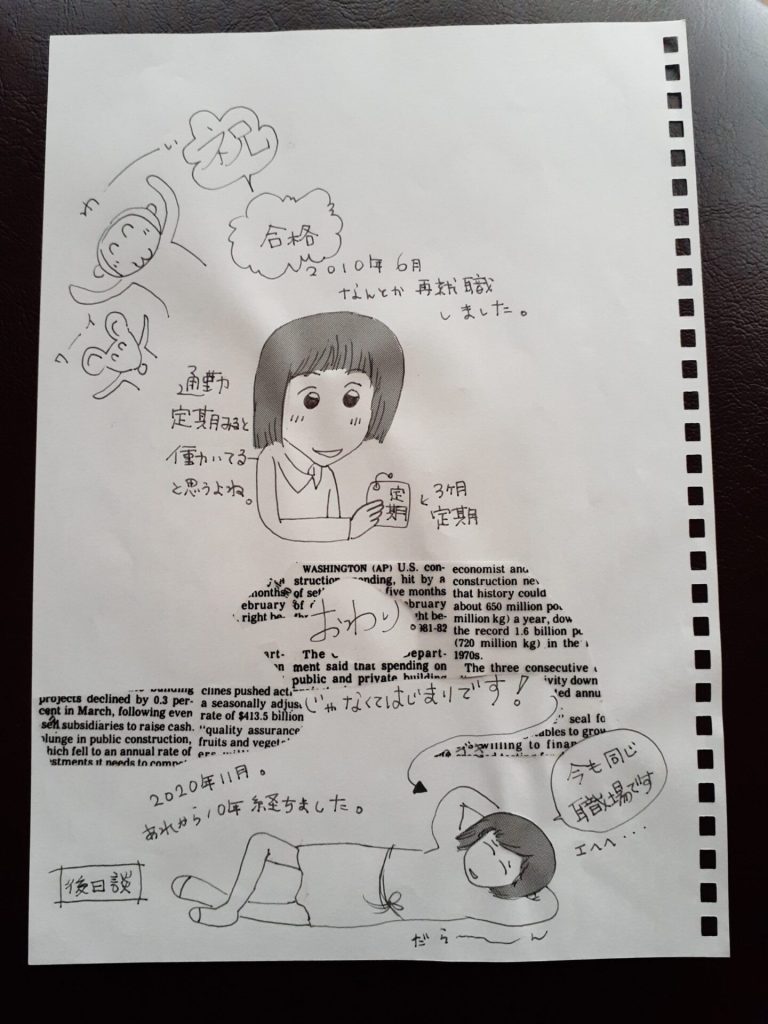 祝
わーい
合格
2010年6月
なんとか再就職
しました。
ワーイ
通勤
定期みると
働いてる
と思うよね。
定期
3ヶ月
定期
WASHINGTON (AP) U.S. con-
struction spending, hit by a
months of set five months
ebruary of ebruary
right be- ght be-
981-82
The epart-
ment said that spending on
public and private building
economist and
construction ne
that history could
about 650 million po
million kg) a year, dow
the record 1.6 billion p
(720 million kg) in the
1970s.
The three consecutive
ivity down
ed annu
seal for
ables to grow
willing to finan
おわり。
じゃなくてはじまりです!
projects declined by 0.3 per-
cent in March, following even
sell subsidiaries to raise cash.
plunge in public construction,
which fell to an annual rate of
stments it needs to compe
clines pushed acti
a seasonally adjus
rate of $413.5 billion
"quality assurance
fruits and veget
2020年11月。
あれから10年経ちました。
今も同じ
職場です
エヘヘ・・・
後日談
だら〜ん